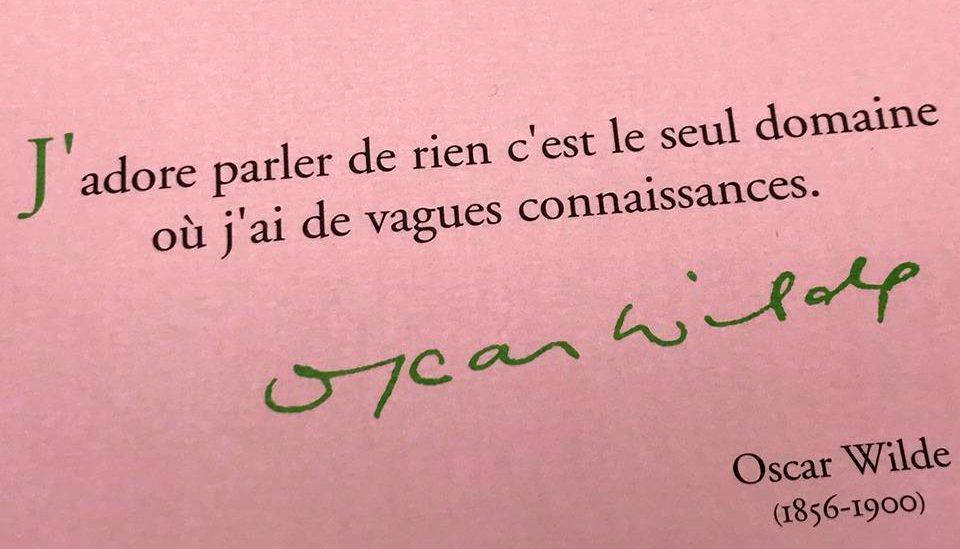 J'adore parler de rien c'est le seul domaine
où j'ai de vagues connaissances.
Oscar Wilde
Oscar Wilde
(1856-1900)